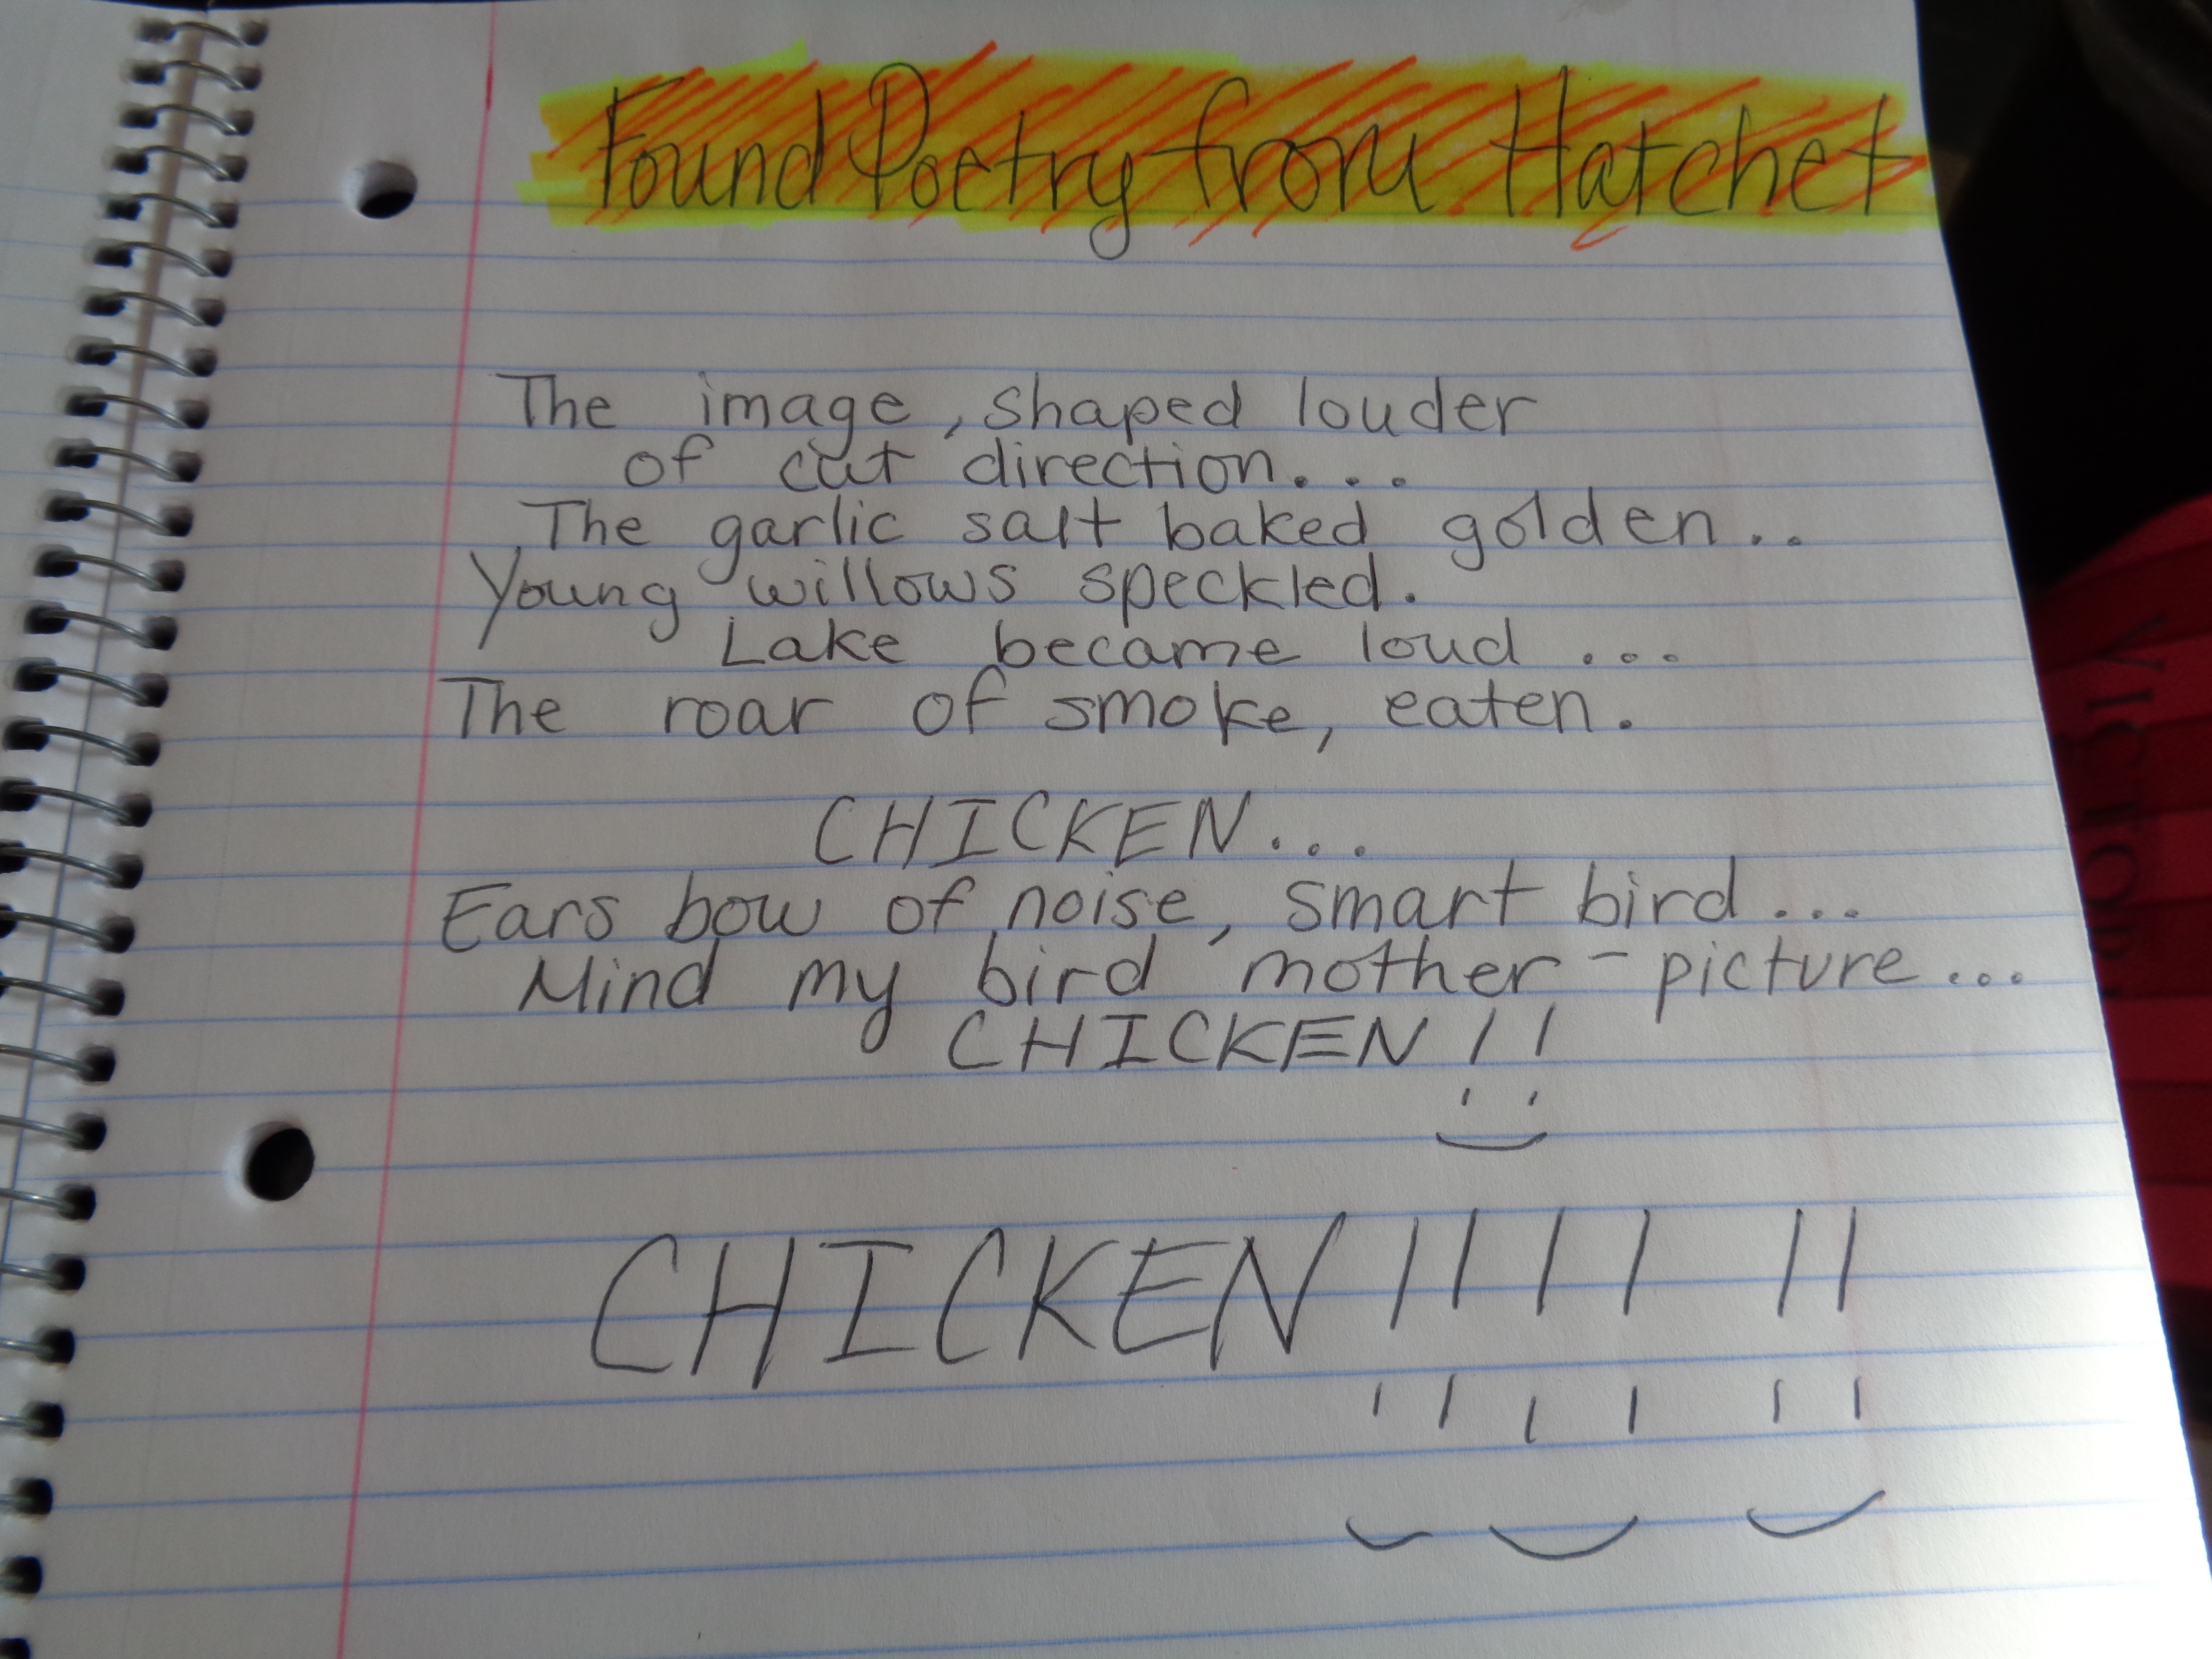 Found Poetry from Hatchet
The image, shaped louder
of cut direction...
The garlic salt baked golden..
Young willows speckled.
Lake became loud ...
The roar of smoke, eaten.
CHICKEN...
Ears bow of noise, smart bird...
Mind my bird mother-picture...
CHICKEN!!
CHICKEN!!!! !!